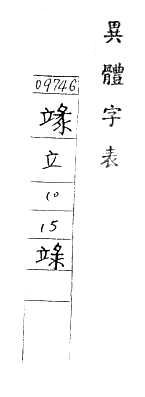 異體字表
09746
立
10
15